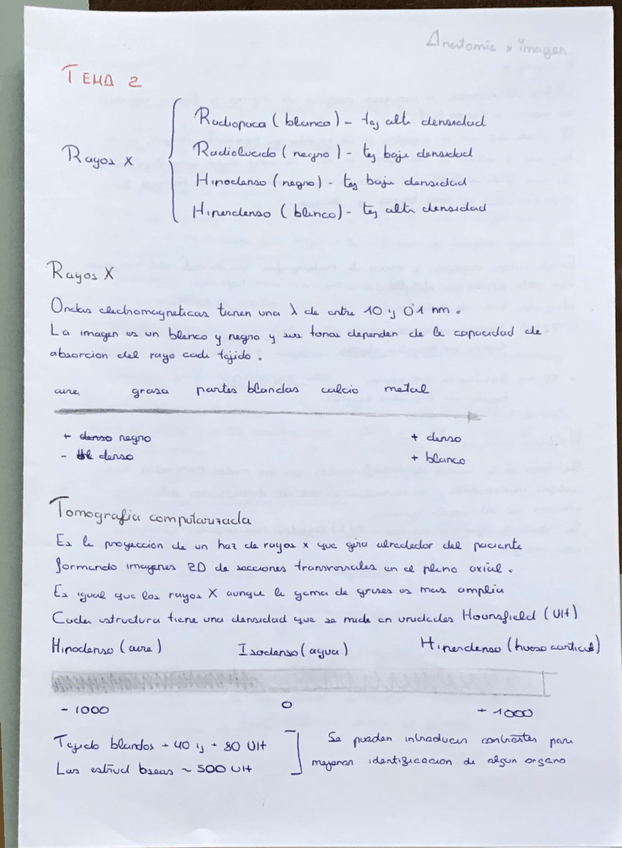 Anatomia x imagen
TEMA 2
Radiopaca (blanco) - tej alta densidad
Rayos X
Radiolucido (negro) - tej baja densidad
Hipodenso (negro) - tej baja densidad
Hiperdenso (blanco) - tej alta densidad
Rayos X
Ondas electromagneticas tienen una λ de entre 10 y 0'1 nm.
La imagen es un blanco y negro y sus tonos dependen de la capacidad de
absorcion del rayo cada tejido.
aire grasa partes blandas calcio metal
+ negro + denso
- denso + blanco
Tomografia computarizada
Es la proyeccion de un haz de rayos x que gira alrededor del paciente
formando imagenes 2D de secciones transversales en el plano axial.
Es igual que los rayos X aunque la gama de grises es mas amplia
Cada estructura tiene una densidad que se mide en unidades Hounsfield (UH)
Hipodenso (aire) Isodenso (agua) Hiperdenso (hueso cortical)
- 1000 0 + 1000
Tejido blandos + 40 y + 80 UH
Las estruct oseas ~ 500 UH
Se pueden introducir contrastes para
mejorar identificacion de algun organo